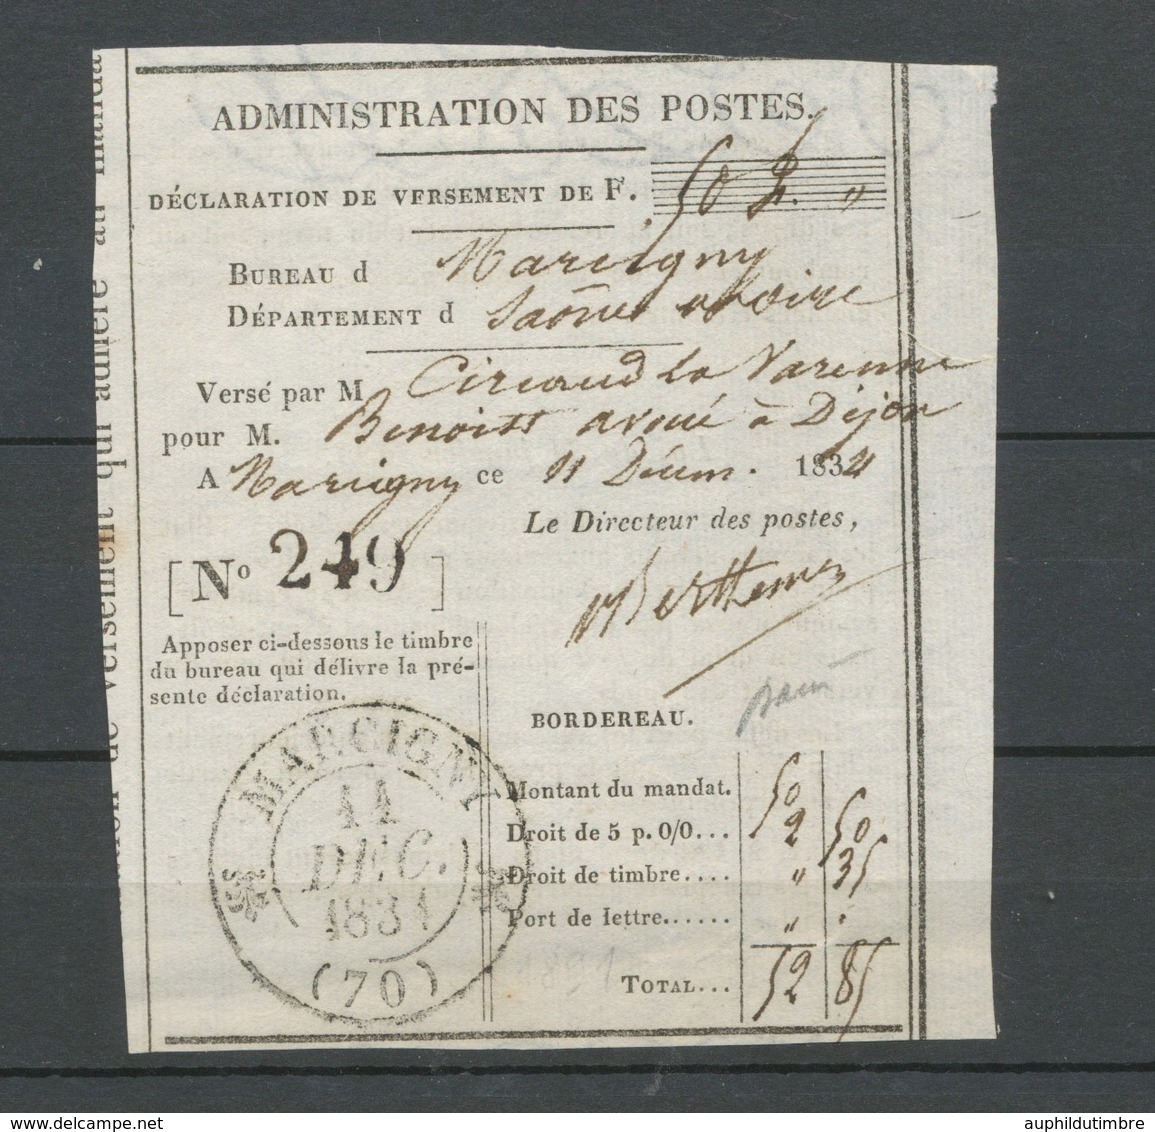 ADMINISTRATION DES POSTES.
DÉCLARATION DE VERSEMENT DE F. 50 f. "
BUREAU d Marcigny
DÉPARTEMENT d Saône et Loire
Versé par M Circaud la Varenne
pour M. Benoist avoué à Dijon
A Marcigny ce 11 Décem. 1834
Le Directeur des postes,
[No 249]
Apposer ci-dessous le timbre
du bureau qui délivre la pré-
sente déclaration.
MARCIGNY
11
DEC.
1834
(70)
BORDEREAU.
Montant du mandat. 50
Droit de 5 p. 0/0... 2 50
Droit de timbre.... " 35
Port de lettre...... "
TOTAL... 52 85
de versement qui adhère au manda
auphildutimbre